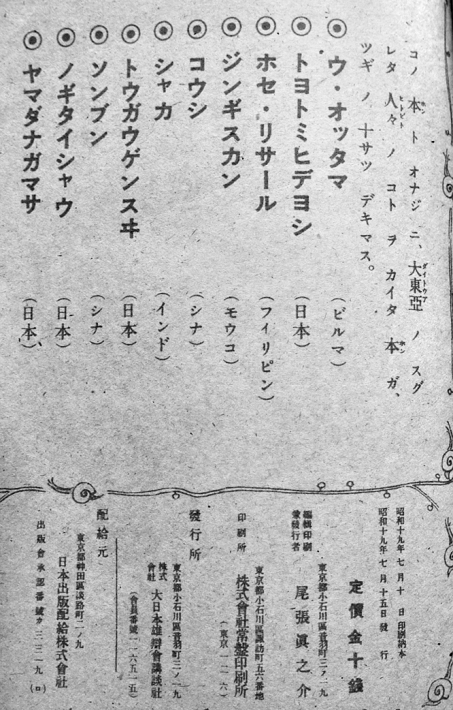 コノ 本 ト オナジ ニ、大東亞 ノ スグ
レタ 人々 ノ コト ヲ カイタ 本 ガ、
ツギ ノ 十サツ デキマス。
◉ ウ・オッタマ (ビルマ)
◉ トヨトミヒデヨシ (日本)
◉ ホセ・リサール (フィリピン)
◉ ジンギスカン (モウコ)
◉ コウシ (シナ)
◉ シャカ (インド)
◉ トウガウゲンスヰ (日本)
◉ ソンブン (シナ)
◉ ノギタイシャウ (日本)
◉ ヤマダナガマサ (日本)
昭和十九年七月十 日印刷納本
昭和十九年七月十五日發 行
定價金十錢
東京都小石川區音羽町三ノ一九
編輯印刷兼發行者 尾張眞之介
東京都小石川區諏訪町五六番地
印刷所 株式會社常盤印刷所
(東京一一六)
發行所 東京都小石川區音羽町三ノ一九
株式會社 大日本雄辯會講談社
(會員番號一一六五一五)
配給元 東京都神田區淡路町二ノ九
日本出版配給株式會社
出版會承認番號か三三一九(ロ)